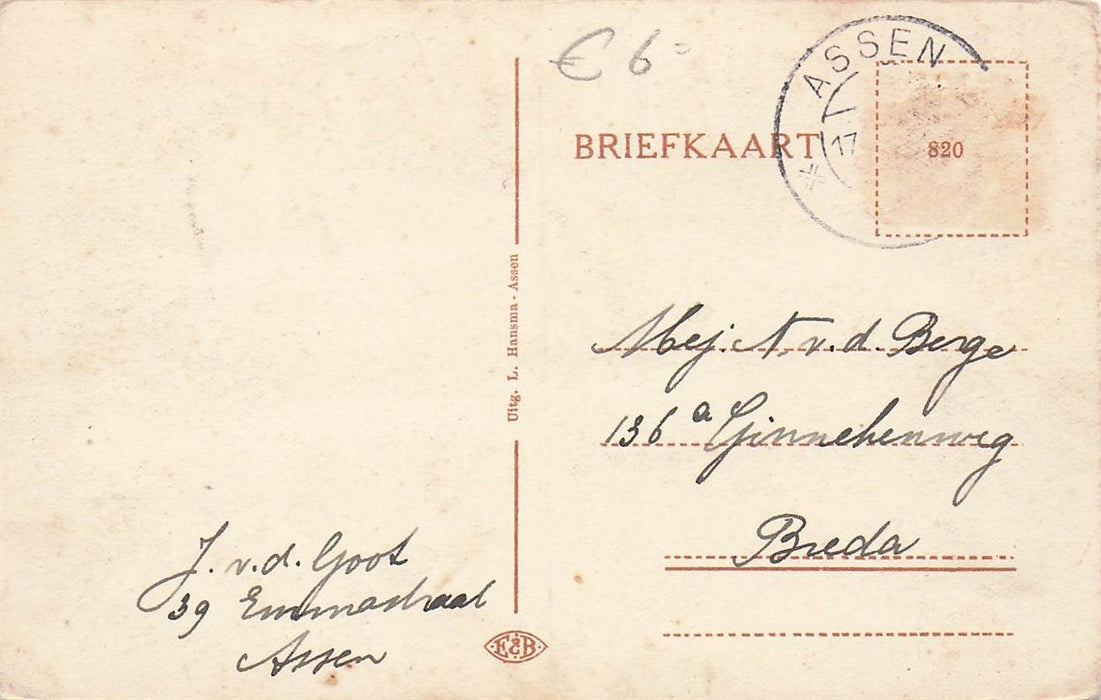 € 6-
ASSEN
17
BRIEFKAART
820
Uitg. L. Hansma - Assen
Mej. N. v. d. Berge
136 a Ginnekenweg
Breda
J. v. d. Goot
39 Emmastraat
Assen
E&B